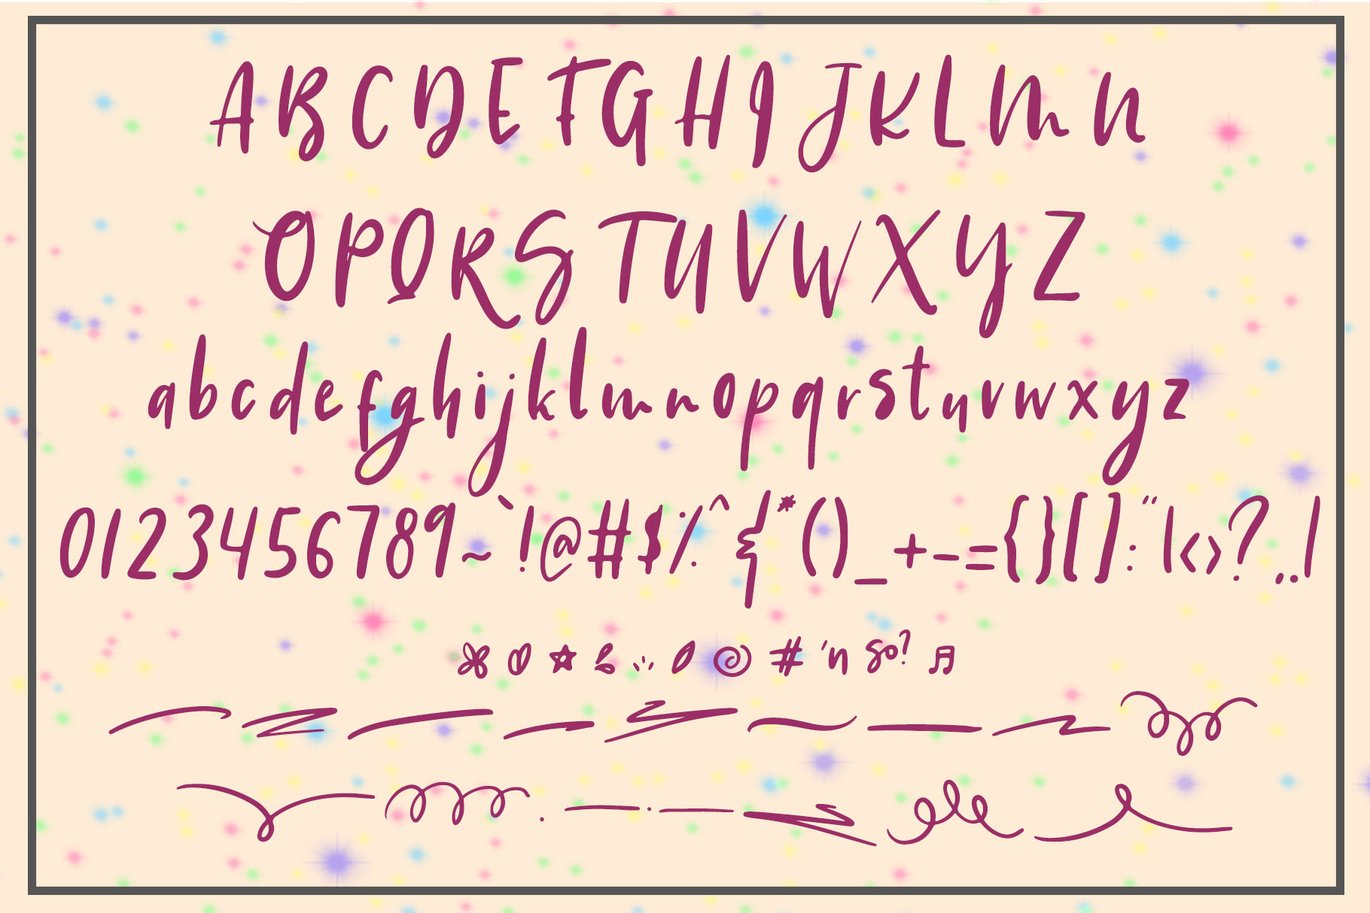 A B C D E F G H I J K L M N
O P Q R S T U V W X Y Z
a b c d e f g h i j k l m n o p q r s t u v w x y z
0 1 2 3 4 5 6 7 8 9 ~ ` ! @ # $ % ^ & * ( ) _ + - = { } [ ] : " | < > ? , . /
# 'n so?